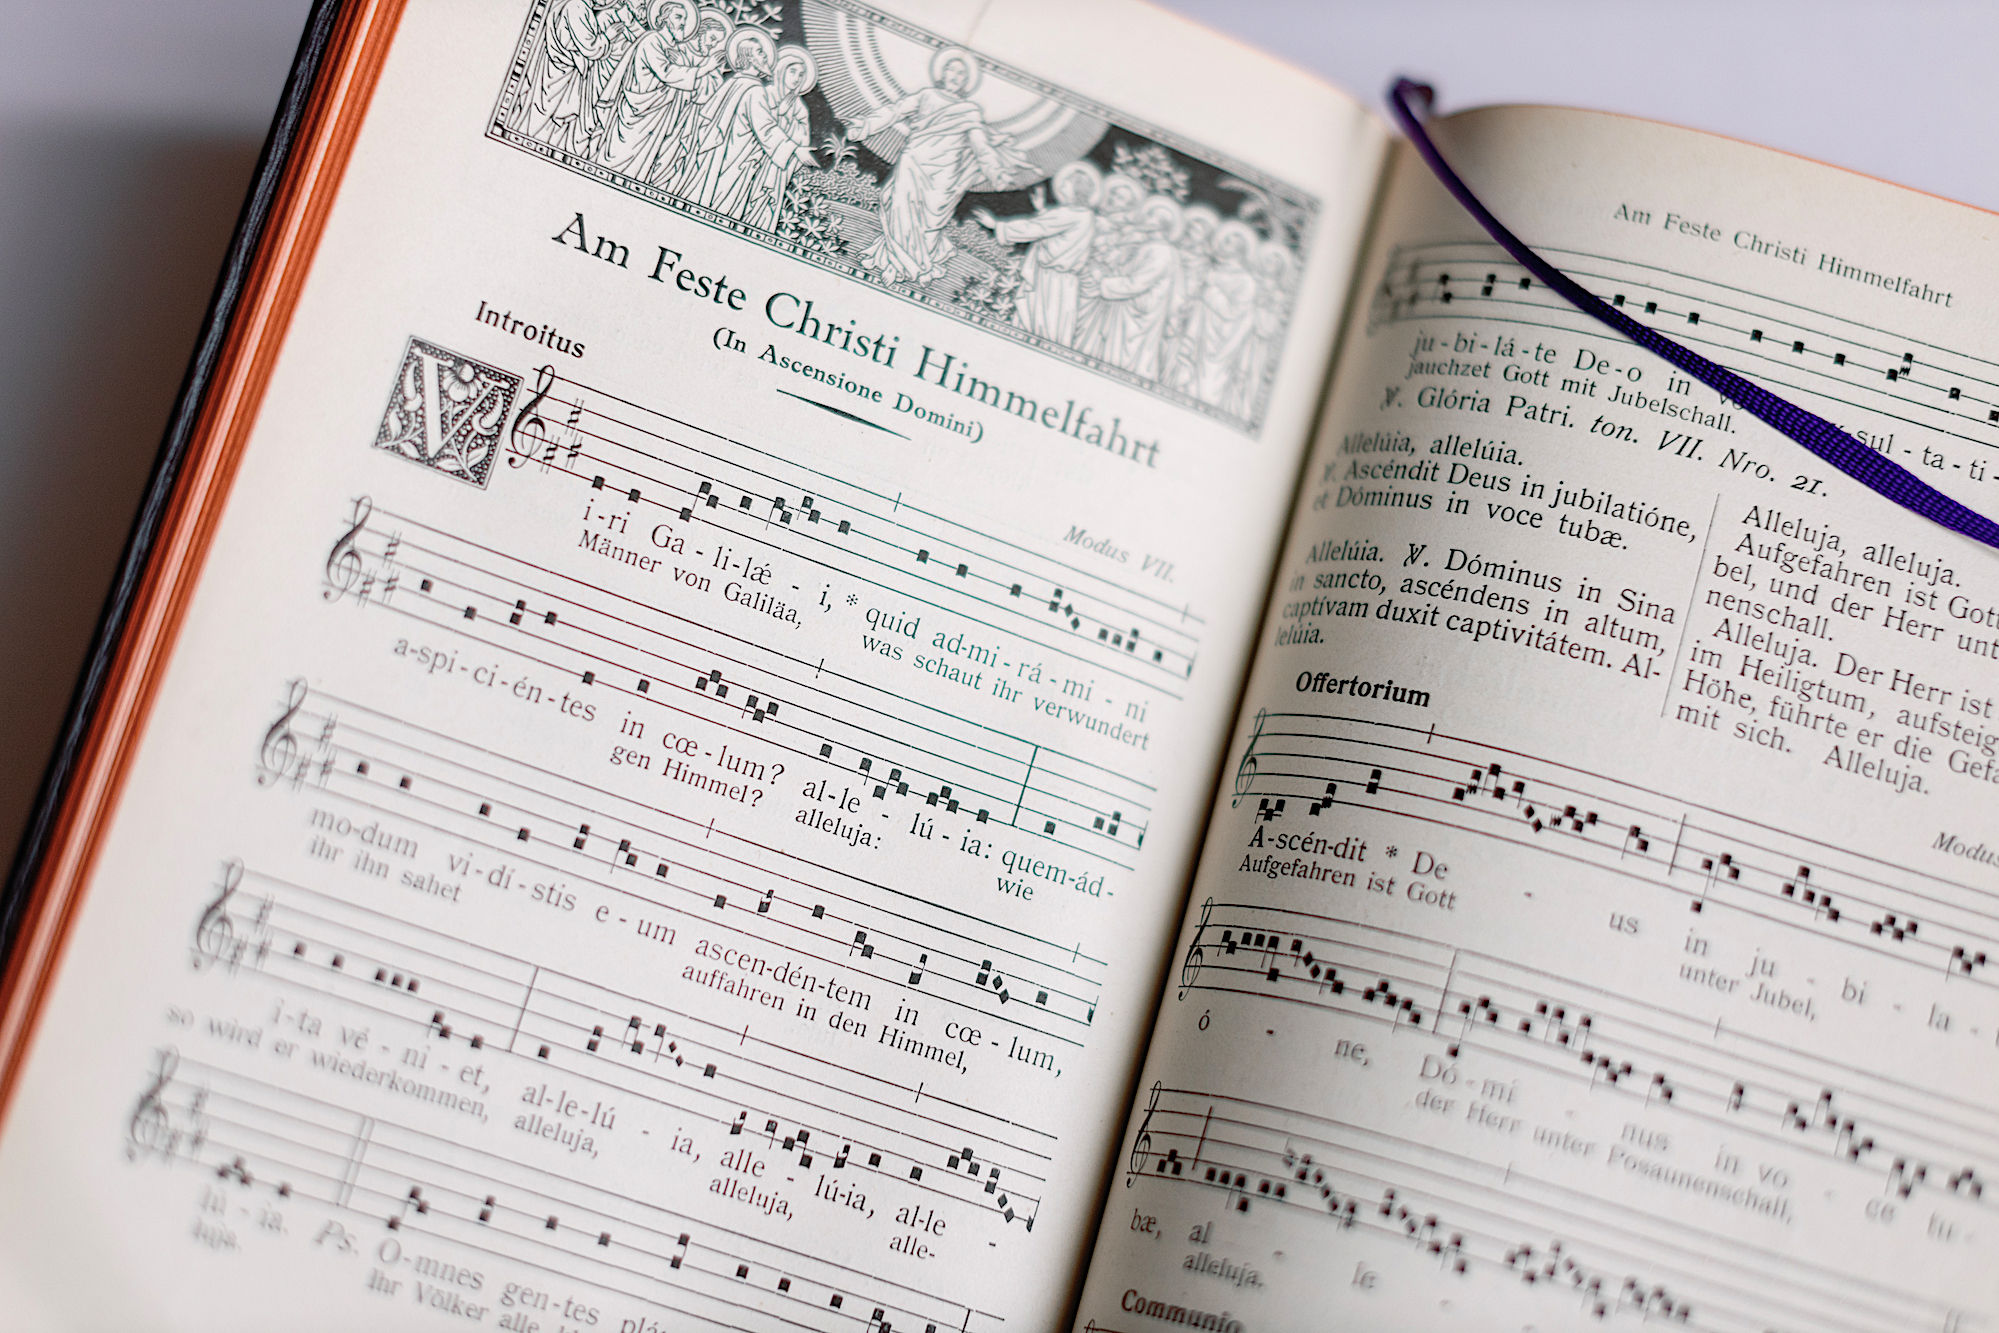 Am Feste Christi Himmelfahrt
(In Ascensione Domini)
Introitus
Modus VII.
V
i-ri Ga - li-lǽ - i, * quid ad-mi - rá - mi - ni
Männer von Galiläa, was schaut ihr verwundert
a-spi-ci-én-tes in cœ-lum? al-le - lú-ia: quem-ád-
gen Himmel? alleluja: wie
mo-dum vi-dí-stis e-um ascen-dén-tem in cœ-lum,
ihr ihn sahet auffahren in den Himmel,
i-ta vé-ni-et, al-le-lú - ia, alle - lú-ia, al-le -
so wird er wiederkommen, alleluja, alleluja, alle-
lú - ia. Ps. O-mnes gen-tes
luja. Ihr Völker alle
Am Feste Christi Himmelfahrt
ju-bi-lá-te De-o in
jauchzet Gott mit Jubelschall.
℣. Glória Patri. ton. VII. Nro. 21.
Allelúia, allelúia.
℣. Ascéndit Deus in jubilatióne,
et Dóminus in voce tubæ.
Allelúia. ℣. Dóminus in Sina
in sancto, ascéndens in altum,
captívam duxit captivitátem. Al-
lelúia.
Alleluja, alleluja.
Aufgefahren ist Gott
bel, und der Herr
nenschall.
Alleluja. Der Herr ist
im Heiligtum,
Höhe, führte er die
mit sich. Alleluja.
Offertorium
Modus
A-scén-dit * De - us in ju - bi - la -
Aufgefahren ist Gott unter Jubel,
ó - ne, Dó-mi - nus in vo - ce tu -
der Herr unter Posaunenschall,
bæ, al - le -
alleluja.
Communio